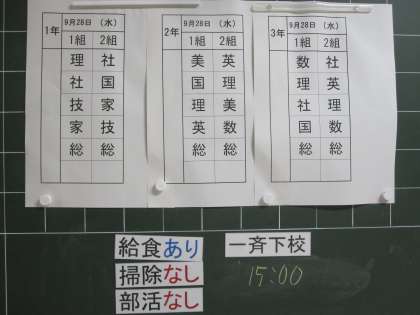 1年 9月28日 (水)
1組 2組
理 社
社 国
技 家
家 技
総 総
2年 9月28日 (水)
1組 2組
美 英
国 国
理 美
英 数
総 総
3年 9月28日 (水)
1組 2組
数 社
理 英
社 理
国 数
総 総
給食あり
掃除なし
部活なし
一斉下校
15:00